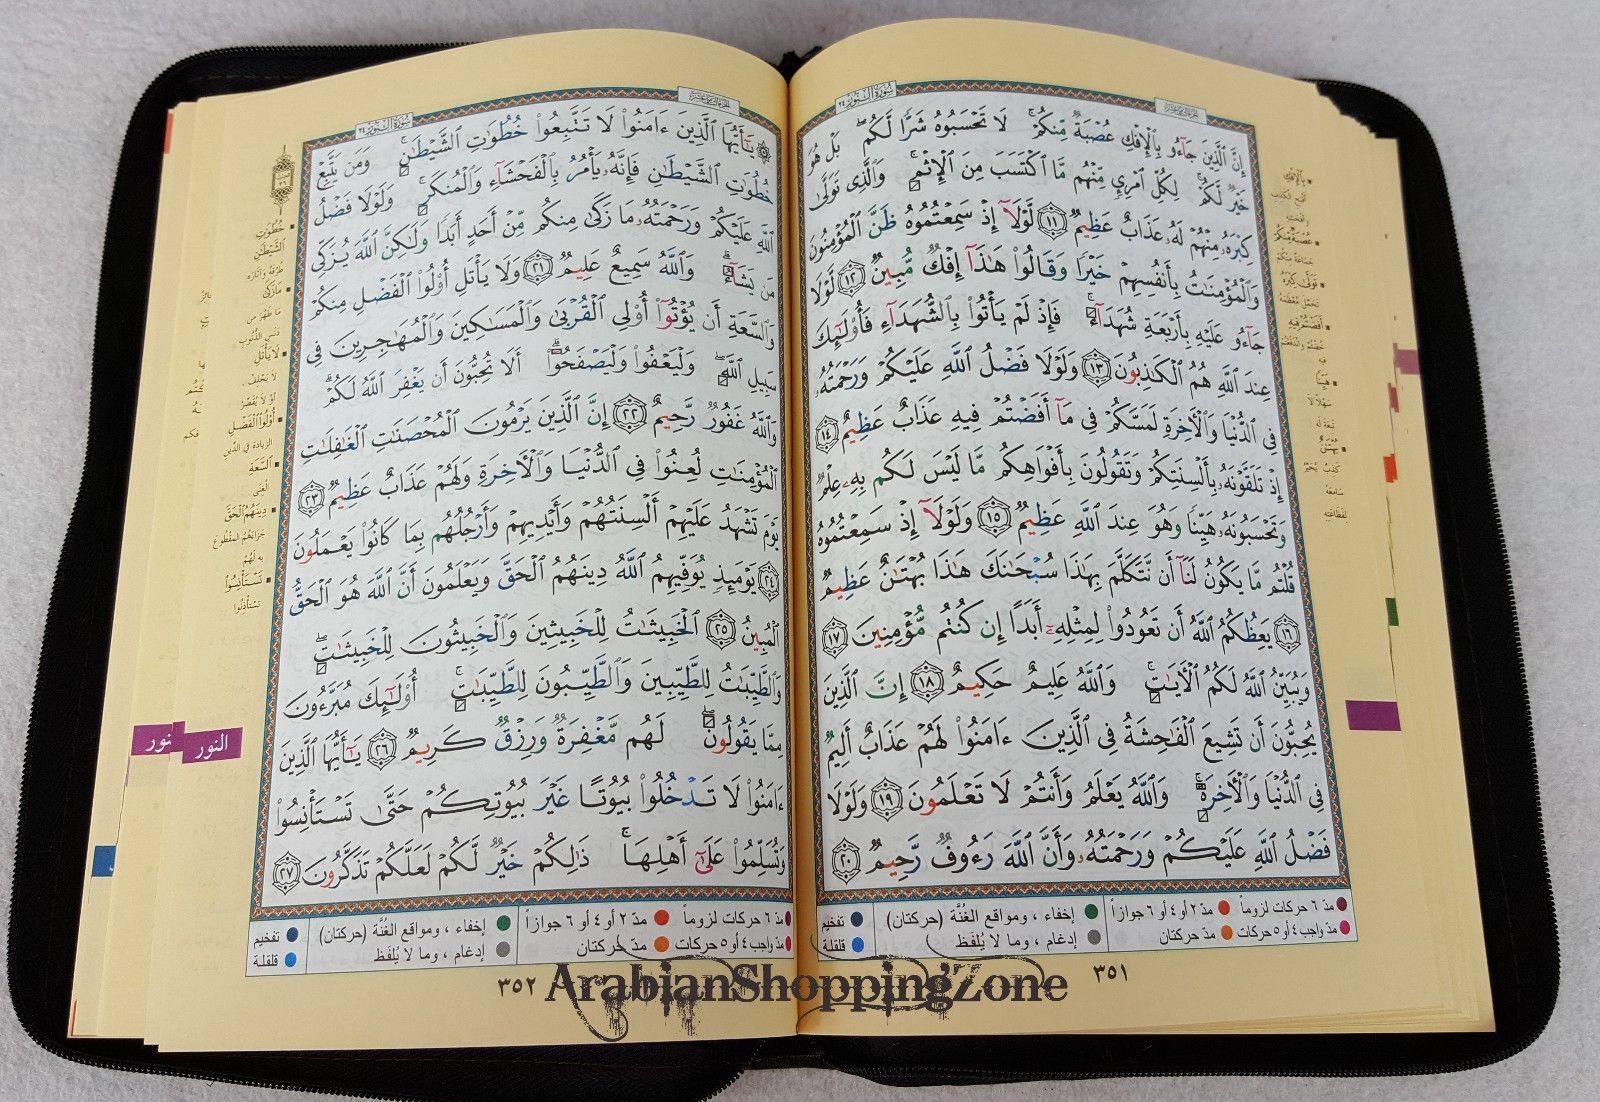 سُورَةُ النُّورِ ٢٤
إِنَّ الَّذِينَ جَاءُو بِالْإِفْكِ عُصْبَةٌ مِّنكُمْ لَا تَحْسَبُوهُ شَرًّا لَّكُم بَلْ هُوَ
خَيْرٌ لَّكُمْ لِكُلِّ امْرِئٍ مِّنْهُم مَّا اكْتَسَبَ مِنَ الْإِثْمِ وَالَّذِي تَوَلَّىٰ
كِبْرَهُ مِنْهُمْ لَهُ عَذَابٌ عَظِيمٌ ١١ لَّوْلَا إِذْ سَمِعْتُمُوهُ ظَنَّ الْمُؤْمِنُونَ
وَالْمُؤْمِنَاتُ بِأَنفُسِهِمْ خَيْرًا وَقَالُوا هَٰذَا إِفْكٌ مُّبِينٌ ١٢ لَّوْلَا
جَاءُو عَلَيْهِ بِأَرْبَعَةِ شُهَدَاءَ فَإِذْ لَمْ يَأْتُوا بِالشُّهَدَاءِ فَأُولَٰئِكَ
عِندَ اللَّهِ هُمُ الْكَاذِبُونَ ١٣ وَلَوْلَا فَضْلُ اللَّهِ عَلَيْكُمْ وَرَحْمَتُهُ
فِي الدُّنْيَا وَالْآخِرَةِ لَمَسَّكُمْ فِي مَا أَفَضْتُمْ فِيهِ عَذَابٌ عَظِيمٌ ١٤
إِذْ تَلَقَّوْنَهُ بِأَلْسِنَتِكُمْ وَتَقُولُونَ بِأَفْوَاهِكُم مَّا لَيْسَ لَكُم بِهِ عِلْمٌ
وَتَحْسَبُونَهُ هَيِّنًا وَهُوَ عِندَ اللَّهِ عَظِيمٌ ١٥ وَلَوْلَا إِذْ سَمِعْتُمُوهُ
قُلْتُم مَّا يَكُونُ لَنَا أَن نَّتَكَلَّمَ بِهَٰذَا سُبْحَانَكَ هَٰذَا بُهْتَانٌ عَظِيمٌ
١٦ يَعِظُكُمُ اللَّهُ أَن تَعُودُوا لِمِثْلِهِ أَبَدًا إِن كُنتُم مُّؤْمِنِينَ ١٧
وَيُبَيِّنُ اللَّهُ لَكُمُ الْآيَاتِ وَاللَّهُ عَلِيمٌ حَكِيمٌ ١٨ إِنَّ الَّذِينَ
يُحِبُّونَ أَن تَشِيعَ الْفَاحِشَةُ فِي الَّذِينَ ءَامَنُوا لَهُمْ عَذَابٌ أَلِيمٌ
فِي الدُّنْيَا وَالْآخِرَةِ وَاللَّهُ يَعْلَمُ وَأَنتُمْ لَا تَعْلَمُونَ ١٩ وَلَوْلَا
فَضْلُ اللَّهِ عَلَيْكُمْ وَرَحْمَتُهُ وَأَنَّ اللَّهَ رَءُوفٌ رَّحِيمٌ ٢٠
مدّ ٦ حركات لزوماً مدّ ٢ أو ٤ أو ٦ جوازاً إخفاء ، ومواقع الغُنَّة (حركتان) تفخيم
مدّ واجب ٤ أو ٥ حركات مدّ حركتان إدغام ، وما لا يُلفَظ قلقلة
٣٥١
سُورَةُ النُّورِ ٢٤
يَا أَيُّهَا الَّذِينَ ءَامَنُوا لَا تَتَّبِعُوا خُطُوَاتِ الشَّيْطَانِ وَمَن يَتَّبِعْ
خُطُوَاتِ الشَّيْطَانِ فَإِنَّهُ يَأْمُرُ بِالْفَحْشَاءِ وَالْمُنكَرِ وَلَوْلَا فَضْلُ
اللَّهِ عَلَيْكُمْ وَرَحْمَتُهُ مَا زَكَىٰ مِنكُم مِّنْ أَحَدٍ أَبَدًا وَلَٰكِنَّ اللَّهَ يُزَكِّي
مَن يَشَاءُ وَاللَّهُ سَمِيعٌ عَلِيمٌ ٢١ وَلَا يَأْتَلِ أُولُوا الْفَضْلِ مِنكُمْ
وَالسَّعَةِ أَن يُؤْتُوا أُولِي الْقُرْبَىٰ وَالْمَسَاكِينَ وَالْمُهَاجِرِينَ فِي
سَبِيلِ اللَّهِ وَلْيَعْفُوا وَلْيَصْفَحُوا أَلَا تُحِبُّونَ أَن يَغْفِرَ اللَّهُ لَكُمْ
وَاللَّهُ غَفُورٌ رَّحِيمٌ ٢٢ إِنَّ الَّذِينَ يَرْمُونَ الْمُحْصَنَاتِ الْغَافِلَاتِ
الْمُؤْمِنَاتِ لُعِنُوا فِي الدُّنْيَا وَالْآخِرَةِ وَلَهُمْ عَذَابٌ عَظِيمٌ ٢٣
يَوْمَ تَشْهَدُ عَلَيْهِمْ أَلْسِنَتُهُمْ وَأَيْدِيهِمْ وَأَرْجُلُهُم بِمَا كَانُوا يَعْمَلُونَ
٢٤ يَوْمَئِذٍ يُوَفِّيهِمُ اللَّهُ دِينَهُمُ الْحَقَّ وَيَعْلَمُونَ أَنَّ اللَّهَ هُوَ الْحَقُّ
الْمُبِينُ ٢٥ الْخَبِيثَاتُ لِلْخَبِيثِينَ وَالْخَبِيثُونَ لِلْخَبِيثَاتِ
وَالطَّيِّبَاتُ لِلطَّيِّبِينَ وَالطَّيِّبُونَ لِلطَّيِّبَاتِ أُولَٰئِكَ مُبَرَّءُونَ
مِمَّا يَقُولُونَ لَهُم مَّغْفِرَةٌ وَرِزْقٌ كَرِيمٌ ٢٦ يَا أَيُّهَا الَّذِينَ
ءَامَنُوا لَا تَدْخُلُوا بُيُوتًا غَيْرَ بُيُوتِكُمْ حَتَّىٰ تَسْتَأْنِسُوا
وَتُسَلِّمُوا عَلَىٰ أَهْلِهَا ذَٰلِكُمْ خَيْرٌ لَّكُمْ لَعَلَّكُمْ تَذَكَّرُونَ ٢٧
خُطُوَاتِ
الشَّيْطَانِ
مَا زَكَىٰ
لَا يَأْتَلِ
أُولُوا الْفَضْلِ
الزيادة في الدِّين
السَّعَةِ
الغِنَى
دِينَهُمُ الْحَقَّ
تَسْتَأْنِسُوا
تستأذِنُوا
النور
مدّ ٦ حركات لزوماً مدّ ٢ أو ٤ أو ٦ جوازاً إخفاء ، ومواقع الغُنَّة (حركتان) تفخيم
مدّ واجب ٤ أو ٥ حركات مدّ حركتان إدغام ، وما لا يُلفَظ قلقلة
٣٥٢
ArabianShoppingZone